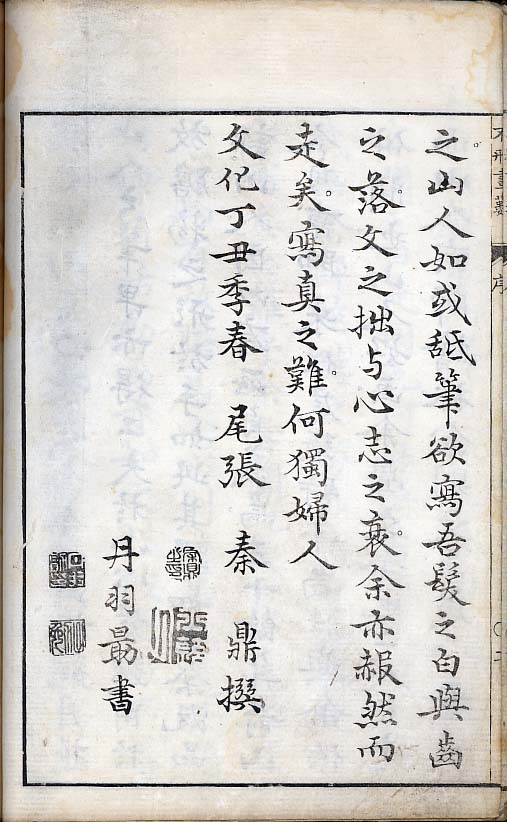 之山人如或舐筆欲寫吾髮之白與齒
之落文之拙与心志之衰余亦赧然而
走矣寫真之難何獨婦人
文化丁丑季春　尾張　秦　鼎撰
丹羽勗書
序